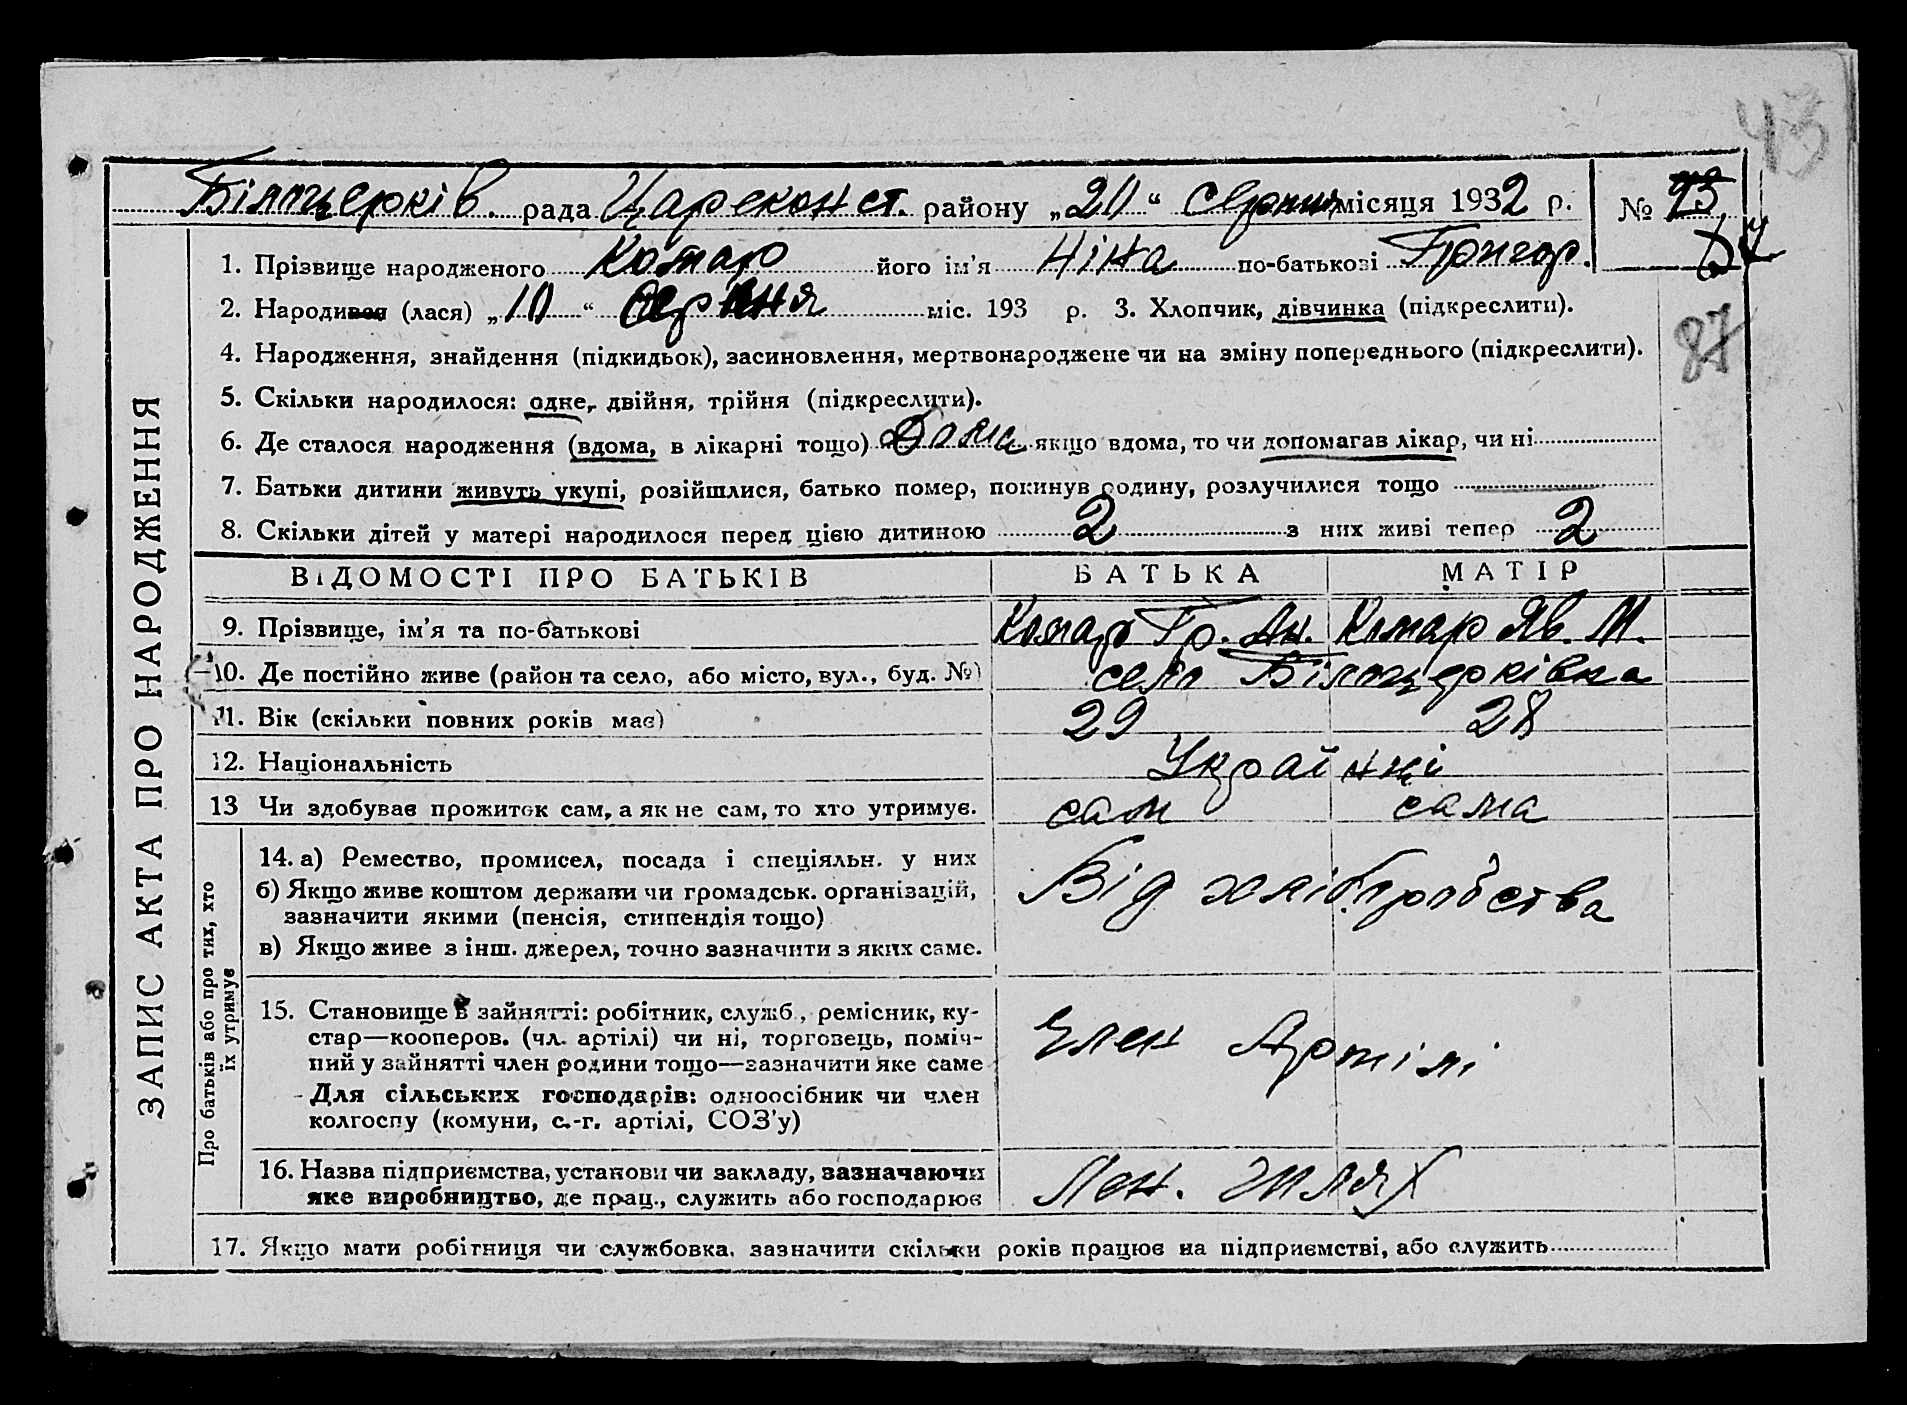 43
Білоцерків. рада Царекон ст. району „20“ серпня місяця 1932 р. № 73
87
1. Прізвище народженого Комар його ім'я Ніна по-батькові Григор.
2. Народився (лася) „10“ серпня міс. 193 р. 3. Хлопчик, дівчинка (підкреслити).
87
4. Народження, знайдення (підкидьок), засиновлення, мертвонароджене чи на зміну попереднього (підкреслити).
5. Скільки народилося: одне, двійня, трійня (підкреслити).
6. Де сталося народження (вдома, в лікарні тощо) Дома якщо вдома, то чи допомагав лікар, чи ні
7. Батьки дитини живуть укупі, розійшлися, батько помер, покинув родину, розлучилися тощо
8. Скільки дітей у матері народилося перед цією дитиною 2 з них живі тепер 2
ЗАПИС АКТА ПРО НАРОДЖЕННЯ
ВІДОМОСТІ ПРО БАТЬКІВ БАТЬКА МАТІР
9. Прізвище, ім'я та по-батькові Комар Гр. Ан. Комар Яв. М.
10. Де постійно живе (район та село, або місто, вул., буд. №) село Білоцерківка
11. Вік (скільки повних років має) 29 28
12. Національність Українці
13 Чи здобуває прожиток сам, а як не сам, то хто утримує. сам сама
Про батьків або про тих, хто
їх утримує
14. а) Ремество, промисел, посада і спеціяльн. у них
б) Якщо живе коштом держави чи громадськ. організацій,
зазначити якими (пенсія, стипендія тощо)
в) Якщо живе з інш. джерел, точно зазначити з яких саме.
Від хліборобства
15. Становище в зайнятті: робітник, служб., ремісник, ку-
стар—кооперов. (чл. артілі) чи ні, торговець, поміч-
ний у зайнятті член родини тощо—зазначити яке саме
Для сільських господарів: одноосібник чи член
колгоспу (комуни, с.-г. артілі, СОЗ'у)
Член Артілі
16. Назва підприємства, установи чи закладу, зазначаючи
яке виробництво, де прац., служить або господарює
Лен. шлях
17. Якщо мати робітниця чи службовка, зазначити скільки років працює на підприємстві, або служить